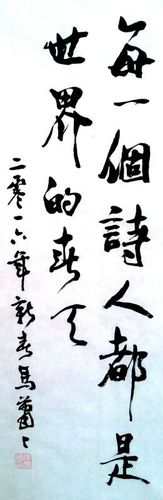 每一個詩人都是
世界的春天
二零一六年新春馬蕭蕭